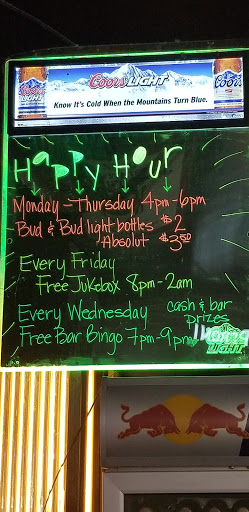 Coors LIGHT
Coors
LIGHT
Know It's Cold When the Mountains Turn Blue.
Happy Hour
Monday - Thursday 4pm-6pm
Bud & Bud light bottles $2
Absolut $3.50
Every Friday
Free Jukebox 8pm-2am
Every Wednesday cash & bar
prizes
Free Bar Bingo 7pm-9pm
Coors
LIGHT